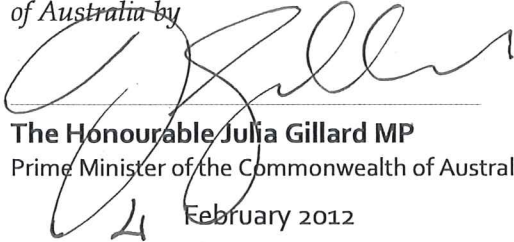 of Australia by
The Honourable Julia Gillard MP
Prime Minister of the Commonwealth of Austral
4 February 2012